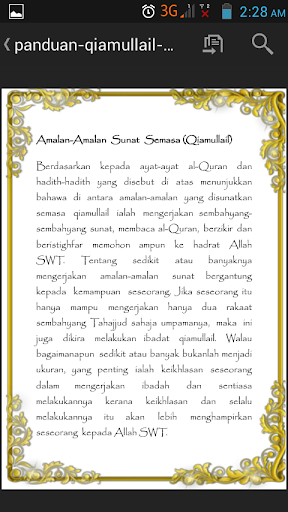 3G 2:28 AM
panduan-qiamullail-...
Amalan-Amalan Sunat Semasa (Qiamullail)
Berdasarkan kepada ayat-ayat al-Quran dan
hadith-hadith yang disebut di atas menunjukkan
bahawa di antara amalan-amalan yang disunatkan
semasa qiamullail ialah mengerjakan sembahyang-
sembahyang sunat, membaca al-Quran, berzikir dan
beristighfar memohon ampun ke hadrat Allah
SWT. Tentang sedikit atau banyaknya
mengerjakan amalan-amalan sunat bergantung
kepada kemampuan seseorang. Jika seseorang itu
hanya mampu mengerjakan hanya dua rakaat
sembahyang Tahajjud sahaja umpamanya, maka ini
juga dikira melakukan ibadat qiamullail. Walau
bagaimanapun sedikit atau banyak bukanlah menjadi
ukuran, yang penting ialah keikhlasan seseorang
dalam mengerjakan ibadah dan sentiasa
melakukannya kerana keikhlasan dan selalu
melakukannya itu akan lebih menghampirkan
seseorang kepada Allah SWT.